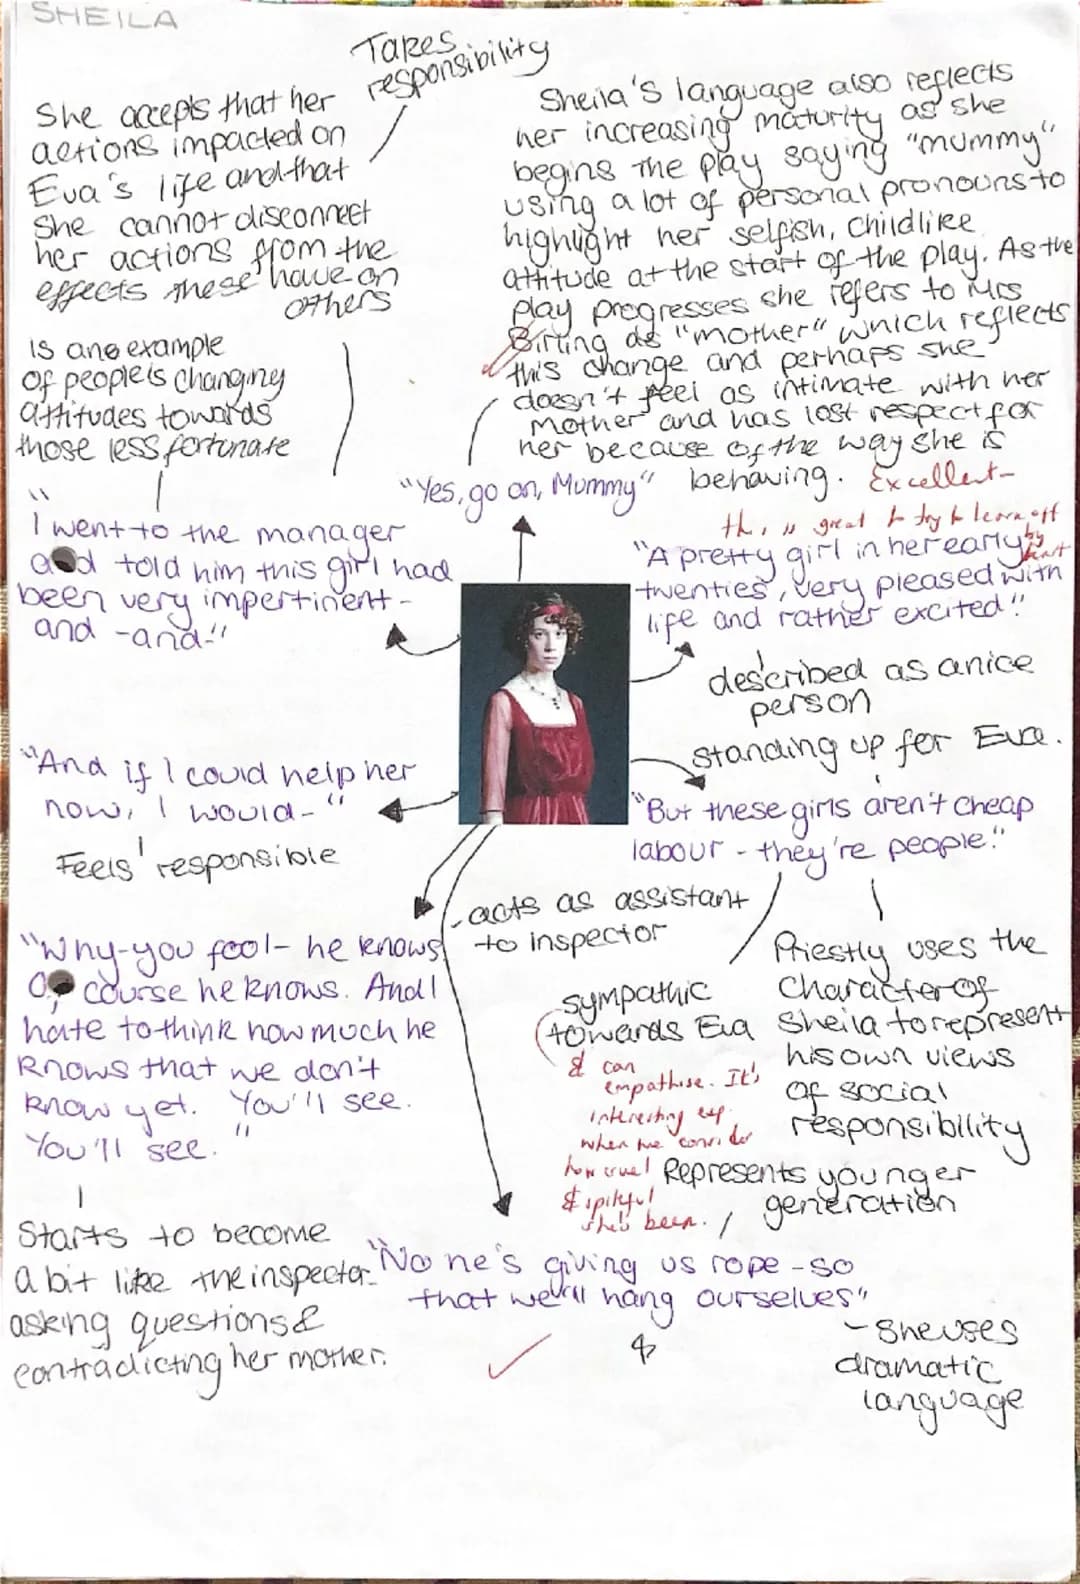 SHEILA
Takes
responsibility
She accepts that her
actions impacted on
Eva's life and that
she cannot disconnect
her actions from the
effects these have on
others
Sheila's language also reflects
her increasing maturity as she
begins the play saying "mummy"
using a lot of personal pronouns to
highlight her selfish, childlike
attitude at the start of the play. As the
play progresses she refers to Mrs
Birling as "mother" which reflects
this change and perhaps she
doesn't feel as intimate with her
mother and has lost respect for
her because of the way she is
behaving.
Excellent-
this is great to try to learn off
by heart
is an example
of people's changing
attitudes towards
those less fortunate
"Yes, go on, Mummy"
"
I went to the manager
and told him this girl had
been very impertinent -
and -and-"
"A pretty girl in her early
twenties, very pleased with
life and rather excited"
described as a nice
person
standing up for Eva.
"And if I could help her
now, I would-"
Feels responsible
"But these girls aren't cheap
labour - they're people."
-acts as assistant
to inspector
"Why-you fool- he knows
Of course he knows. And I
hate to think how much he
knows that we don't
know yet. You'll see.
You'll see."
sympathic
towards Eva
& can
empathise. It's
interesting esp.
when we consider
how cruel
& spiteful
she's been.
Priestly uses the
character of
Sheila to represent
his own views
of social
responsibility
Represents younger
generation
Starts to become
a bit like the inspector
asking questions &
contradicting her mother.
"No he's giving us rope - so
that we'll hang ourselves"
- she uses
dramatic
language